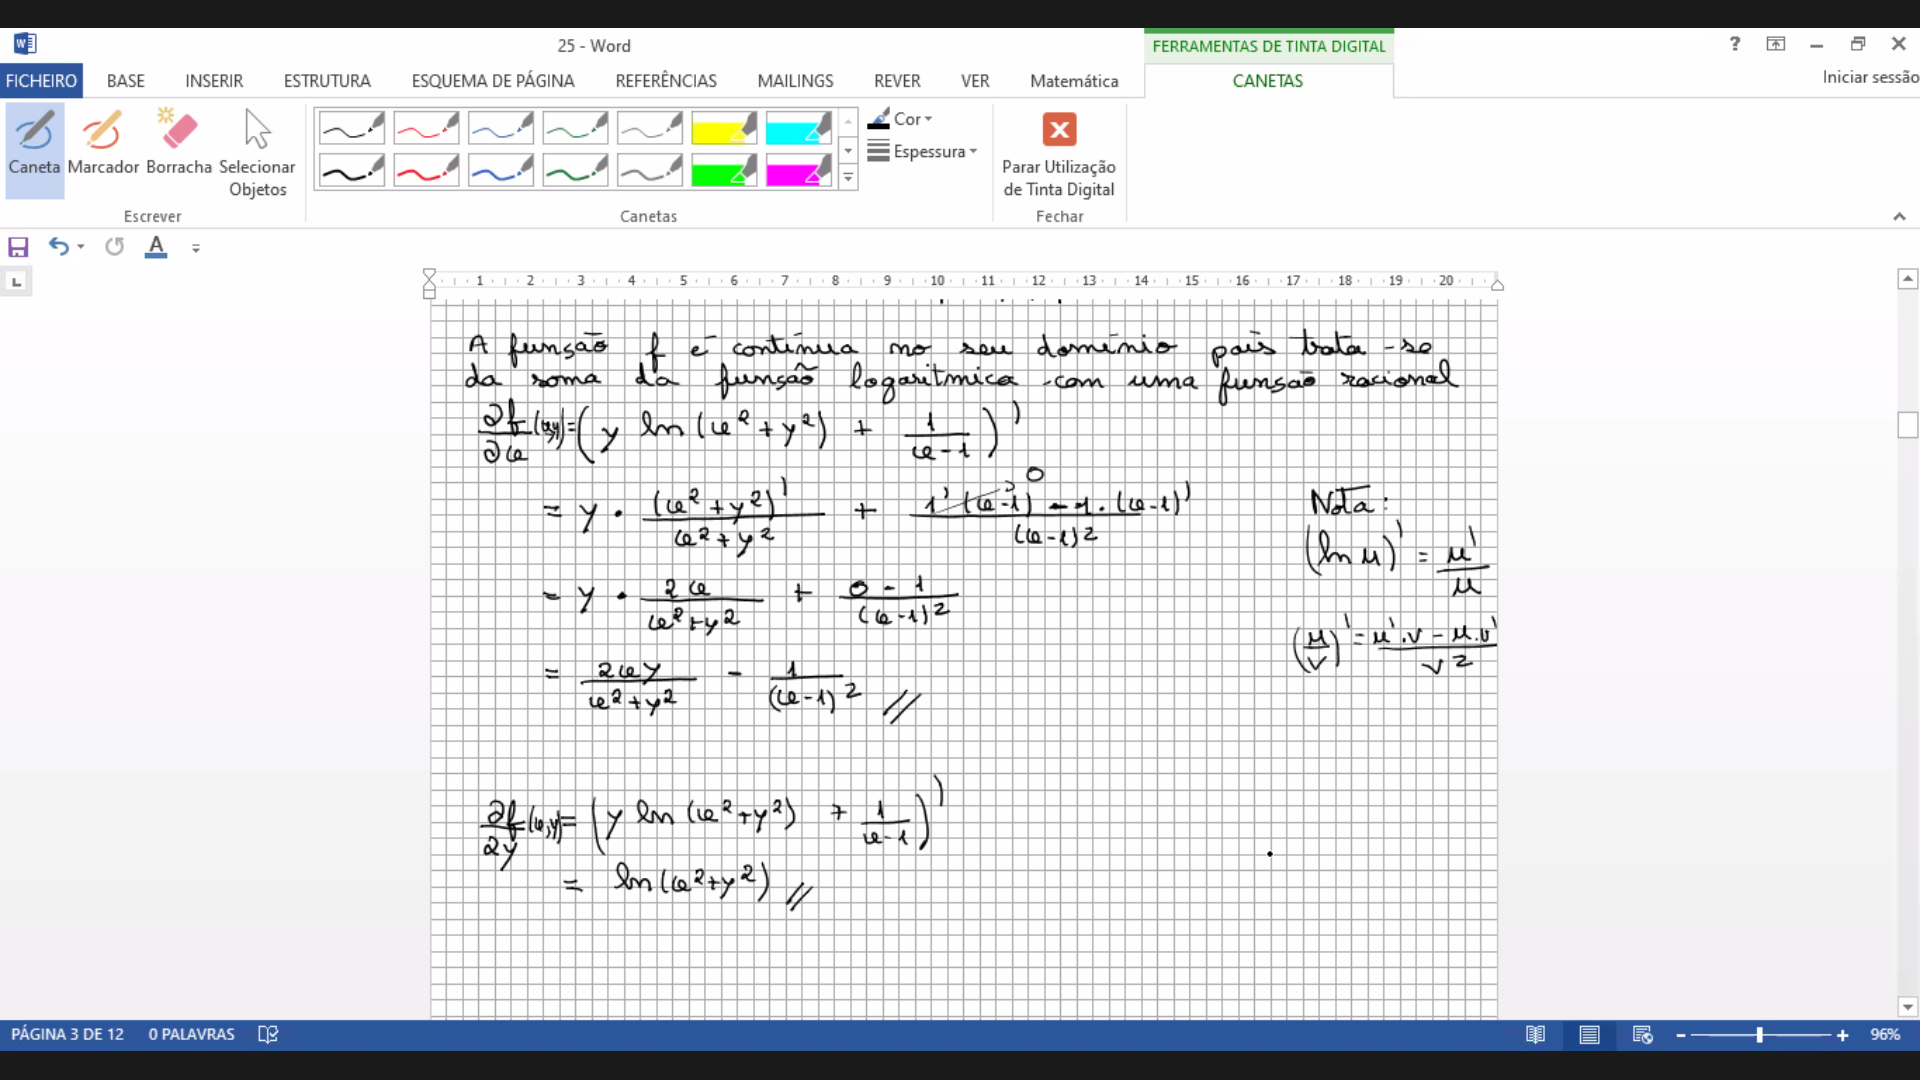 25 - Word
FERRAMENTAS DE TINTA DIGITAL
?
FICHEIRO BASE INSERIR ESTRUTURA ESQUEMA DE PÁGINA REFERÊNCIAS MAILINGS REVER VER Matemática CANETAS Iniciar sessão
Caneta Marcador Borracha Selecionar Objetos
Cor
Espessura
Parar Utilização de Tinta Digital
Escrever Canetas Fechar
1 2 3 4 5 6 7 8 9 10 11 12 13 14 15 16 17 18 19 20
A função f é contínua no seu domínio pois trata-se
da soma da função logarítmica com uma função racional
∂f/∂x (x,y) = (y ln(x²+y²) + 1/(x-1))'
= y · (x²+y²)'/(x²+y²) + (1'(x-1) - 1·(x-1)')/(x-1)²
0
= y · 2x/(x²+y²) + (0-1)/(x-1)²
= 2xy/(x²+y²) - 1/(x-1)² //
Nota:
(ln μ)' = μ'/μ
(μ/v)' = (μ'.v - μ.v')/v²
∂f/∂y (x,y) = (y ln(x²+y²) + 1/(x-1))'
= ln(x²+y²) //
PÁGINA 3 DE 12 0 PALAVRAS 96%